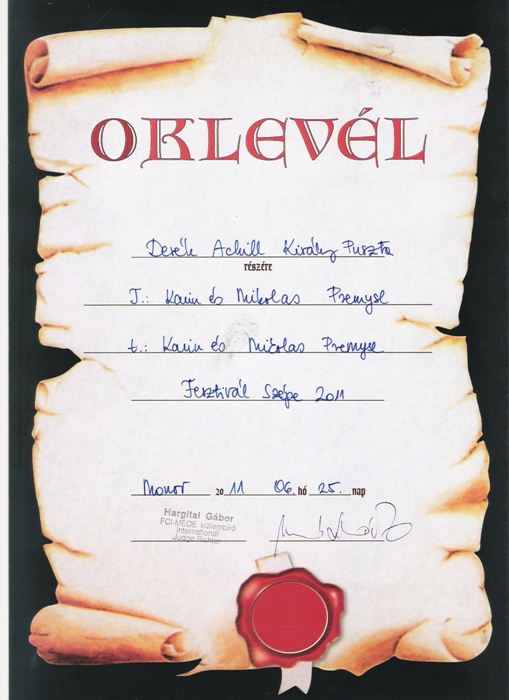 OKLEVÉL
Derék Achill Király Puszta
részére
T.: Karin és Mikolas Premysl
t.: Karin és Mičolas Premyse
Fesztivál Szépe 2011
Monor 2011 06. hó 25. nap
Hargitai Gábor
FCI-MEOE küllembíró
International
Judge Richter